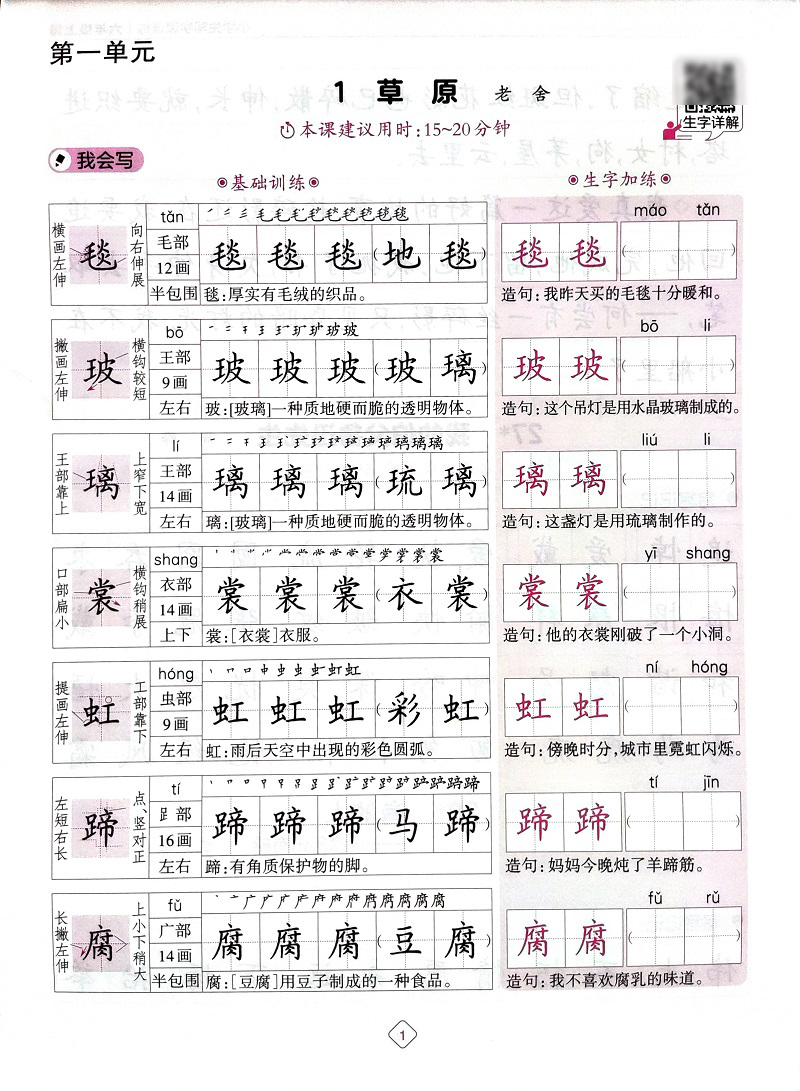 第一单元
1 草原 老舍
生字详解
本课建议用时:15~20分钟
我会写
基础训练
生字加练
横画左伸
毯
向右伸展
tǎn
毛部
12画
半包围
毯 毯 毯 (地 毯)
毯:厚实有毛绒的织品。
毯 毯
máo tǎn
( )
造句:我昨天买的毛毯十分暖和。
撇画左伸
玻
横钩较短
bō
王部
9画
左右
玻 玻 玻 (玻 璃)
玻:[玻璃]一种质地硬而脆的透明物体。
玻 玻
bō li
( )
造句:这个吊灯是用水晶玻璃制成的。
王部靠上
璃
上窄下宽
lí
王部
14画
左右
璃 璃 璃 (琉 璃)
璃:[玻璃]一种质地硬而脆的透明物体。
璃 璃
liú li
( )
造句:这盏灯是用琉璃制作的。
口部扁小
裳
横钩稍展
shang
衣部
14画
上下
裳 裳 裳 (衣 裳)
裳:[衣裳]衣服。
裳 裳
yī shang
( )
造句:他的衣裳刚破了一个小洞。
提画左伸
虹
工部靠下
hóng
虫部
9画
左右
虹 虹 虹 (彩 虹)
虹:雨后天空中出现的彩色圆弧。
虹 虹
ní hóng
( )
造句:傍晚时分,城市里霓虹闪烁。
左短右长
蹄
点、竖对正
tí
⻊部
16画
左右
蹄 蹄 蹄 (马 蹄)
蹄:有角质保护物的脚。
蹄 蹄
tí jīn
( )
造句:妈妈今晚炖了羊蹄筋。
长撇左伸
腐
上小下稍大
fǔ
广部
14画
半包围
腐 腐 腐 (豆 腐)
腐:[豆腐]用豆子制成的一种食品。
腐 腐
fǔ rǔ
( )
造句:我不喜欢腐乳的味道。
1